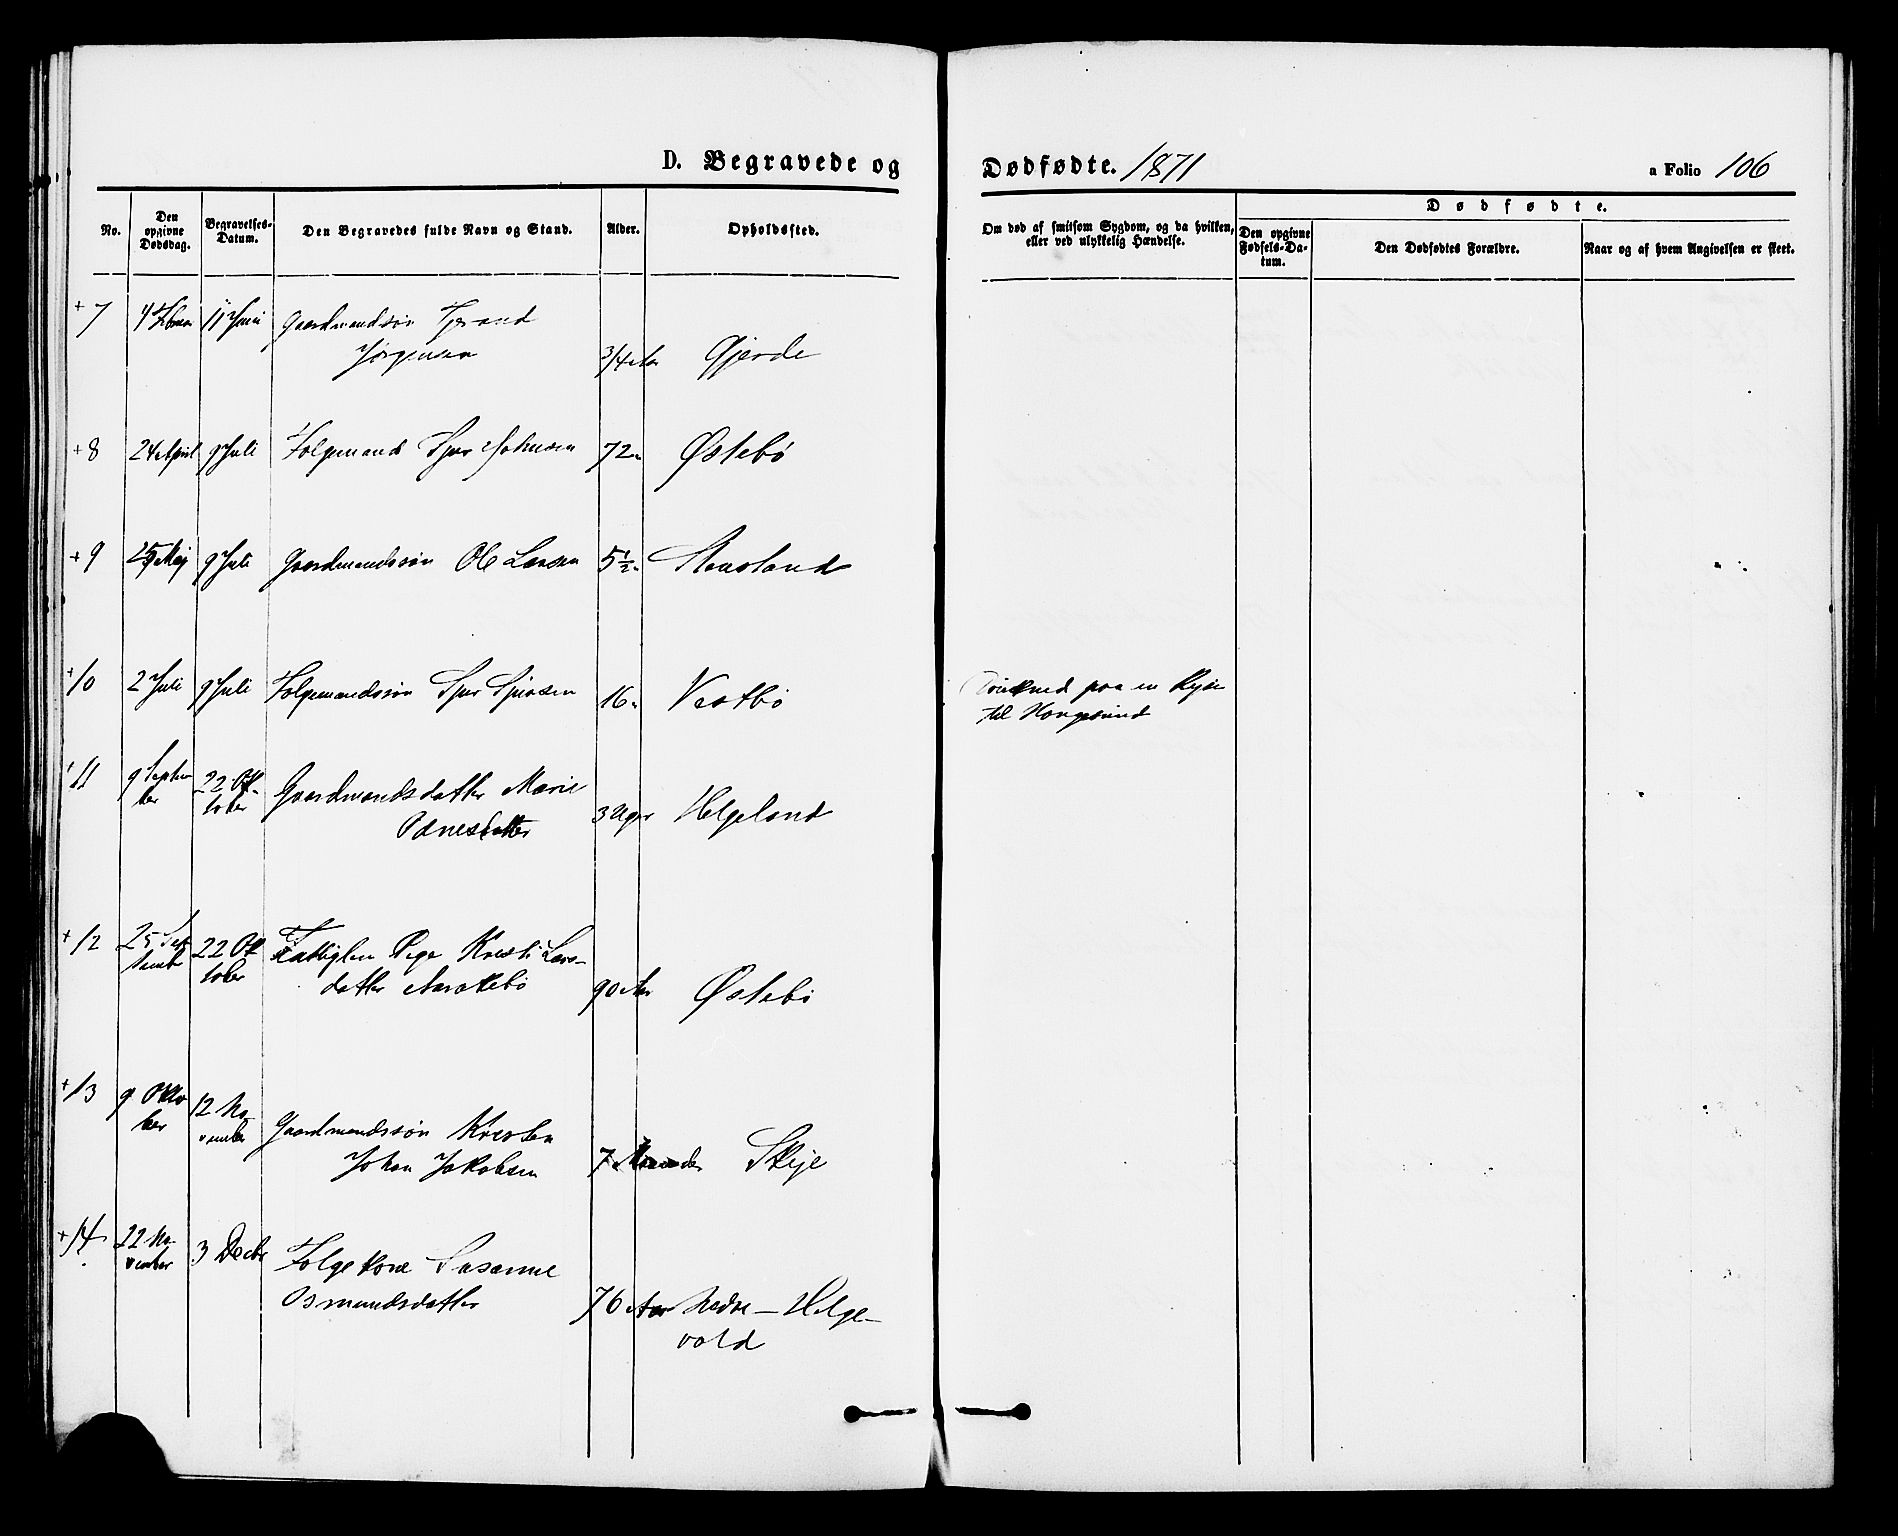 D. Begravede og
Dødfødte. 1871
a Folio 106
No.
Den opgivne Dødsdag.
Begravelses-Datum.
Den Begravedes fulde Navn og Stand.
Alder.
Opholdssted.
Om død af smitsom Sygdom, og da hvilken, eller ved ulykkelig Hændelse.
Dødfødte.
Den opgivne Fødsels-Datum.
Den Dødfødtes Forældre.
Naar og af hvem Angivelsen er skeet.
+7 11 Juni Gaardmandssøn
Jørgensen 3/4 Aar Gjerde
+8 24 April 9 Juli Folgemand Sjur Johnsen 72 " Østebø
+9 Maj 9 Juli Gaardmandssøn Ole Larsen 5½ "
+10 2 Juli 9 Juli Folgemandssøn Sjur Sjursen 16 " Vestbø
Drukned paa en Rejse
til Haugesund
11 9 September 22 Oktober Gaardmandsdatter Marie
3 Uger Helgeland
+12 25 September 22 Oktober Fattiglem Pige Kresti Lars-
datter 90 Aar Østebø
+13 9 Oktober 12 November Gaardmandssøn Kresten
Johan Jakobsen 7 Maaneder Skeje
+14 22 November 3 Decbr Folgekone Susanne
Osmundsdatter 76 Aar Nedre-Helge-
vold